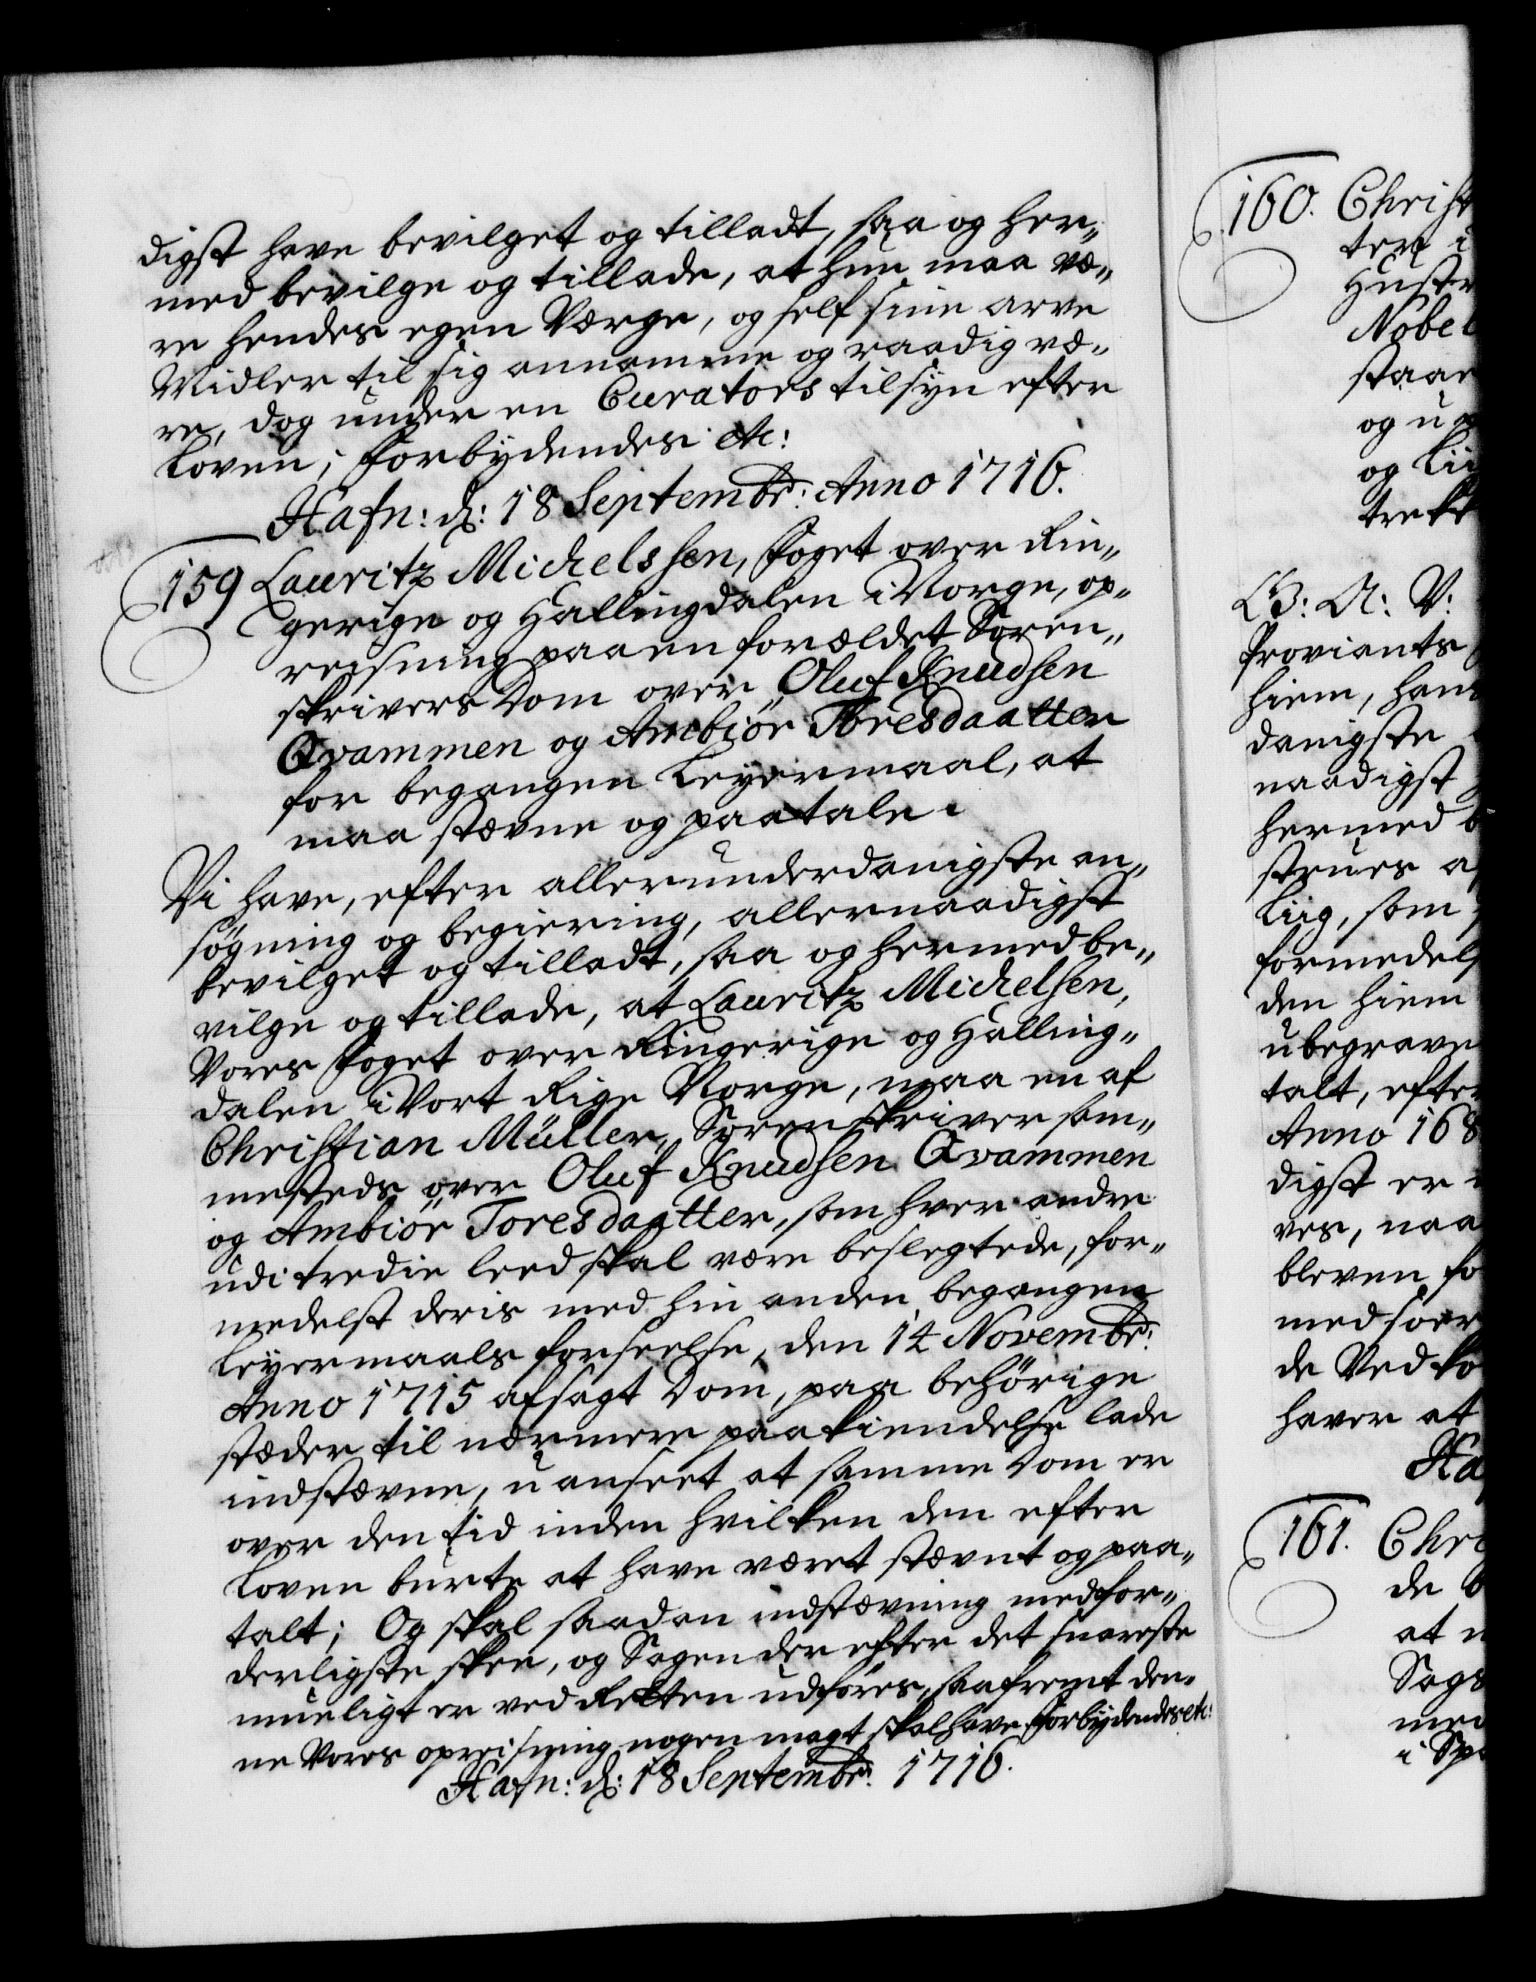 digst have bevilget og tilladt, saa og her„
med bevilge og tillade, at hun maa væ„
re hendes egen Værge, og self sine arve
Midler til sig annamme og raadig væ„
re, dog under en Curators tilsyn efter
Loven; Forbydendes etc:
Hafn: d: 18 Septembr: Anno 1716.
159 Lauritz Michelssen, Foget over Rin„
gerige og Hallingdalen i Norge, op„
reisning paa en forældet Soren„
skrivers Dom over Oluf Knudsen
Qvammen og Ambiør Toresdaatter
for begangen Leyermaal, at
maa stævne og paatale.
Vi have, efter allerunderdanigste an„
søgning og begiering, allernaadigst
bevilget og tilladt, saa og hermed be„
vilge og tillade, at Lauritz Michelsen,
Vores Foget over Ringerige og Halling„
dalen i Vort Rige Norge, maa en af
Christian Müller, Sorenskriver sam„
mesteds over Oluf Knudsen Qvammen
og Ambiør Toresdaatter, som hver andre
udi tredie leed skal være beslegtede, for„
medelst deris med hin anden begangen
Leyermaals forseelse, den 14 Novembr:
Anno 1715 afsagt Dom, paa behørige
stæder til nærmere paakiendelse lade
indstævne, uanseet at samme Dom er
over den tid inden hvilken den efter
Loven burte at have været stævnt og paa„
talt; Og skal saadan indstævning medfor„
derligste skee, og Sagen der efter det snareste
mueligt er ved Retten udføres, saafremt den„
ne Vores opreisning nogen magt skal have. Forbydendes etc:
Hafn: d: 18 Septembr: 1716.
160. Christ
ter
Hustr
Nobel
staae
og
og Lii
trekk
B: A: V:
Proviants
hiem, hans
danigste
naadigst
hermed b
strues
Liig, som
formedels
den hiem
ubegrave
talt, efter
Anno 168
digst er
ves, naa
bleven fo
med
de Vedko
haver at
Ha
161. Chr
de
at
Sags
med
i